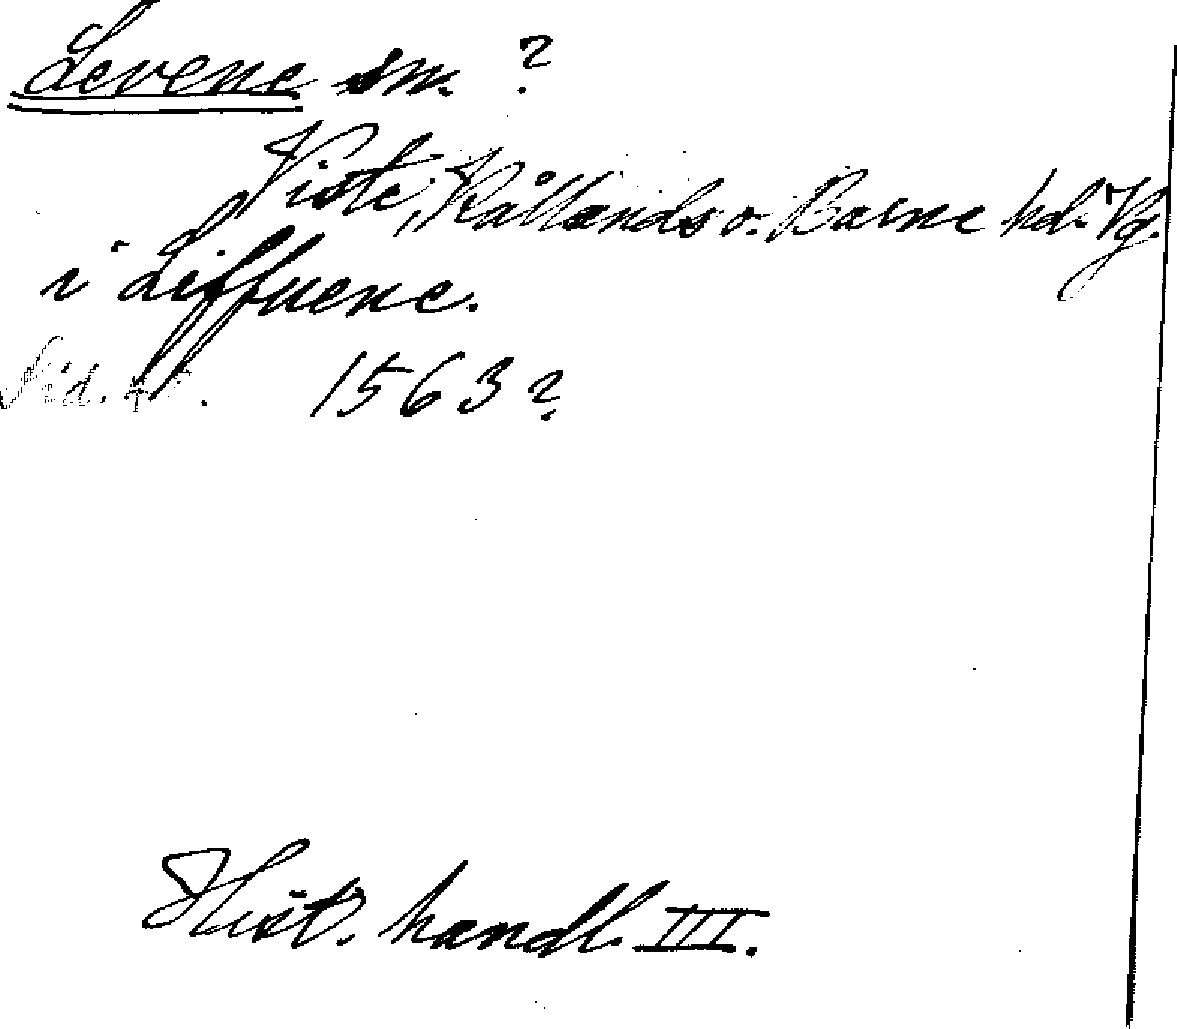 Levene sn. ?
Viste, Kållands o. Barne hd. Vg.
i Liffuene.
Sid. 45. 1563?
Hist. handl. III.